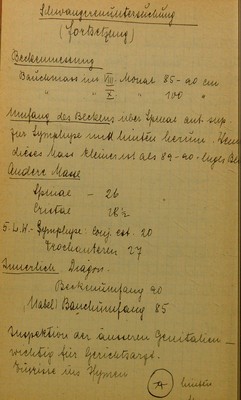 Schwangerenuntersuchung
(Fortsetzung)
Beckenmessung
Bauchmass im VIII. Monat 85-90 cm
" " X. " 100 "
Umfang des Beckens über Spinae ant. sup.
zur Symphyse und hinten herum. Wenn
dieses Mass kleiner ist als 89-90
Andere Masse
Spinae - 26
Cristae 28½
5. L.W.-Symphyse: Conj. ext. 20
Trochanteren 27
Innerlich Diagon.
Beckenumfang 90
(Nabel) Bauchumfang 85
Inspektion der äusseren Genitalien-
wichtig für Gerichtsarzt.
Einrisse im Hymen
hinten